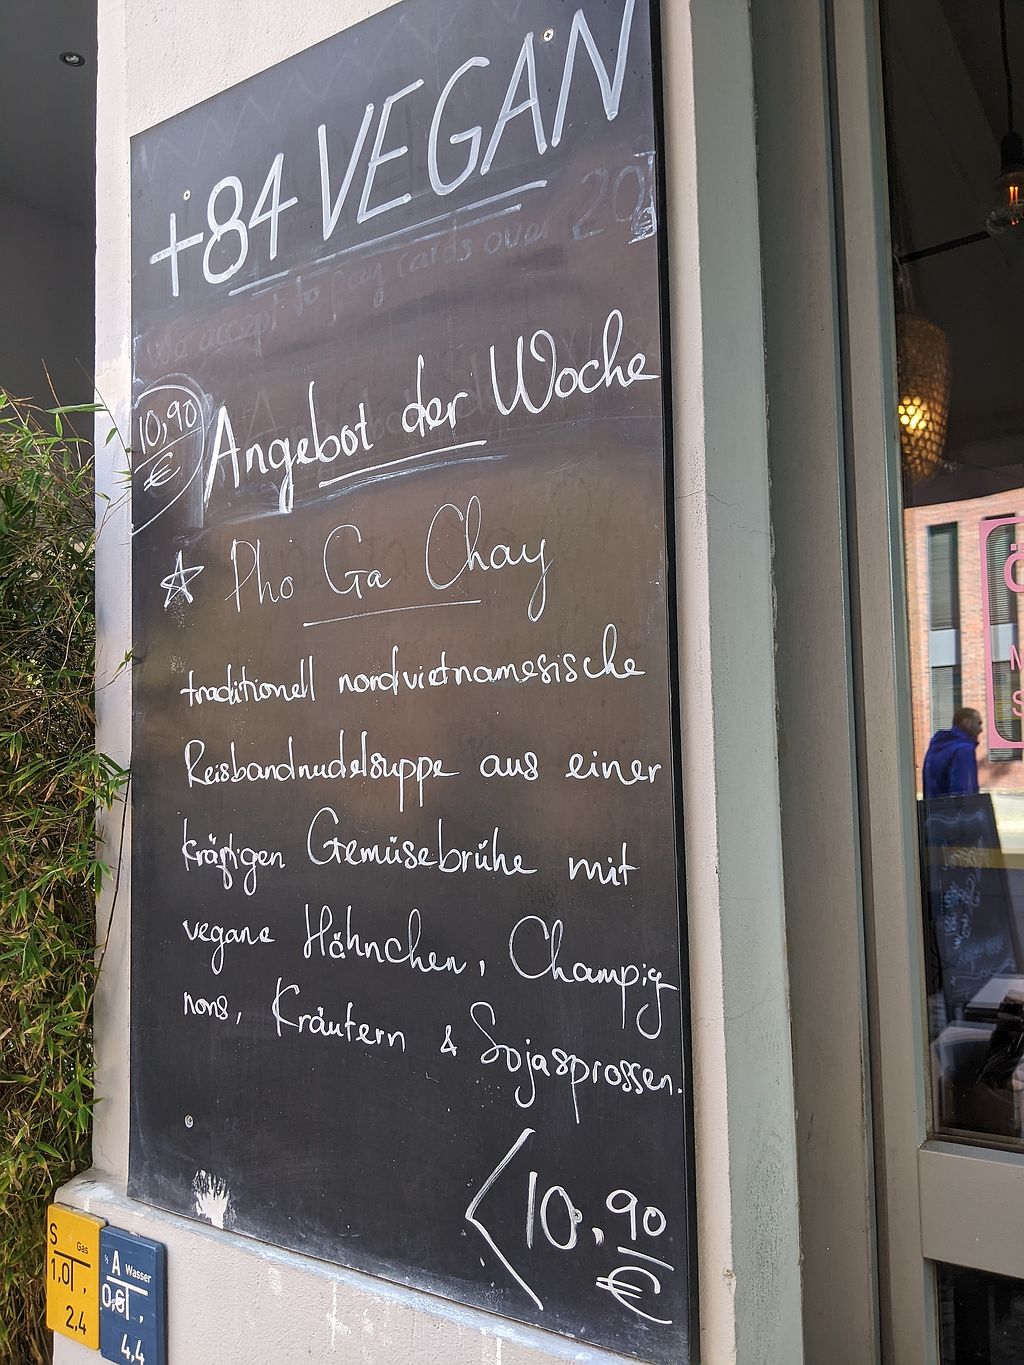 +84 VEGAN
We accept to pay cards over 20
10,90
€
Angebot der Woche
Pho Ga Chay
traditionell nordvietnamesische
Reisbandnudelsuppe aus einer
kräftigen Gemüsebrühe mit
vegane Hähnchen, Champig
nons, Kräutern & Sojasprossen.
10,90
€
S Gas
1,0
2,4
A Wasser
4,4